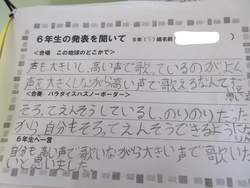 6年生の発表を聞いて 5年( )組名前
<合唱 この地球のどこかで>
声も大きいし、高い声で歌っているのがよく
声を大きくしながら高い声で歌えるなんてす
<合奏 パラダイスハズノーボーダー>
そろってえんそうしているし、のりのりだった
から、自分もそろってえんそうできるように
6年生へ一言
自分も高い声で歌いながら大きい声で歌いた
いと思いました。